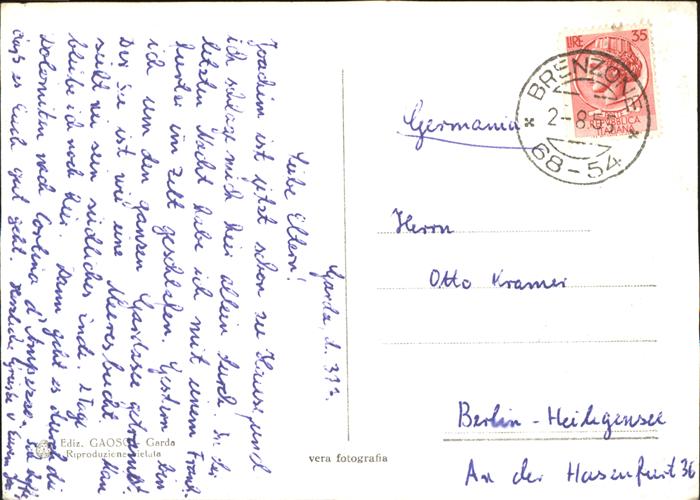 Garda, d. 31.7.
Liebe Eltern!
Joachim ist jetzt schon zu Hause, und
ich schlage mich hier allein durch. In der
letzten Nacht habe ich mit einem Frank-
furter im Zelt geschlafen. Gestern bin
ich um den ganzen Gardasee getrampt.
Der See ist wie eine Meeresbucht. Man
sieht nie sein südliches Ende. 2 Tage
bleibe ich noch hier. Dann geht es durch die
Dolomiten nach Cortina d'Ampezzo. Ich hoffe,
daß es Euch gut geht. Herzliche Grüsse v. Eurem
Ediz. GAOSO - Garda
Riproduzione vietata
vera fotografia
LIRE 35
REPUBBLICA
ITALIANA
BRENZONE
2-8.55
68-54
Germania
Herrn
Otto Kramer
Berlin - Heiligensee
An der Hasenfurt 36